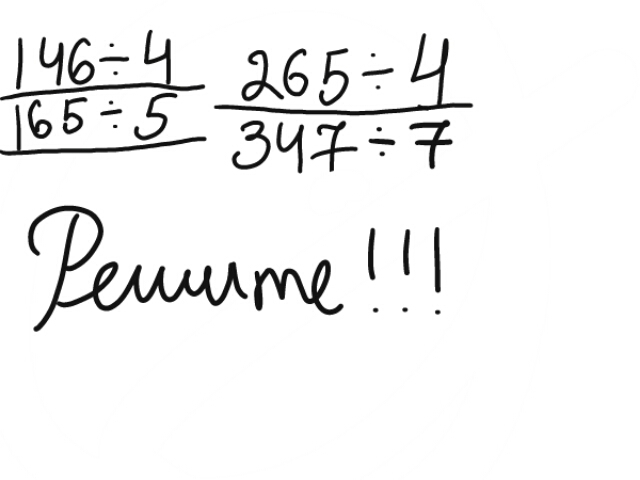 146÷4 265÷4
165÷5 347÷7
Решите!!!